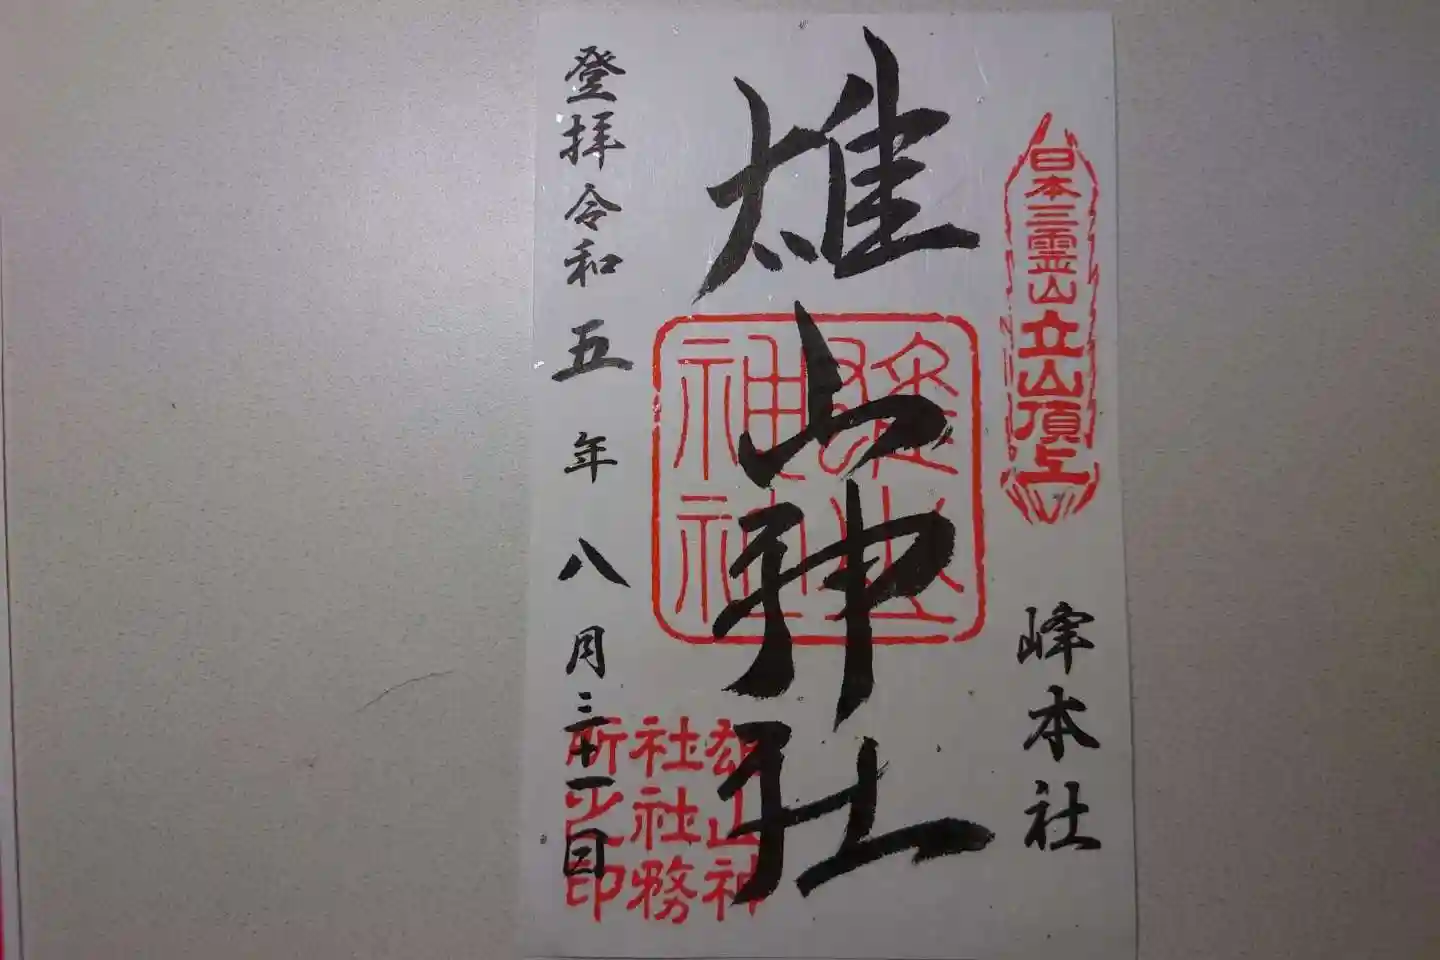 日本三霊山立山頂上
峰本社
雄山神社
雄山神社
雄山神
社社務
所之印
登拝令和五年八月三十一日